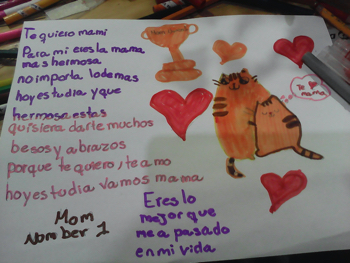 Te quiero mami
Para mi eres la mama
mas hermosa
no importa lo demas
hoy es tu dia y que
hermosa estas
quisiera darte muchos
besos y abrazos
porque te quiero, te amo
hoy es tu dia vamos mama
Mom
Nomber 1
Eres lo
mejor que
me a pasado
en mi vida
mama